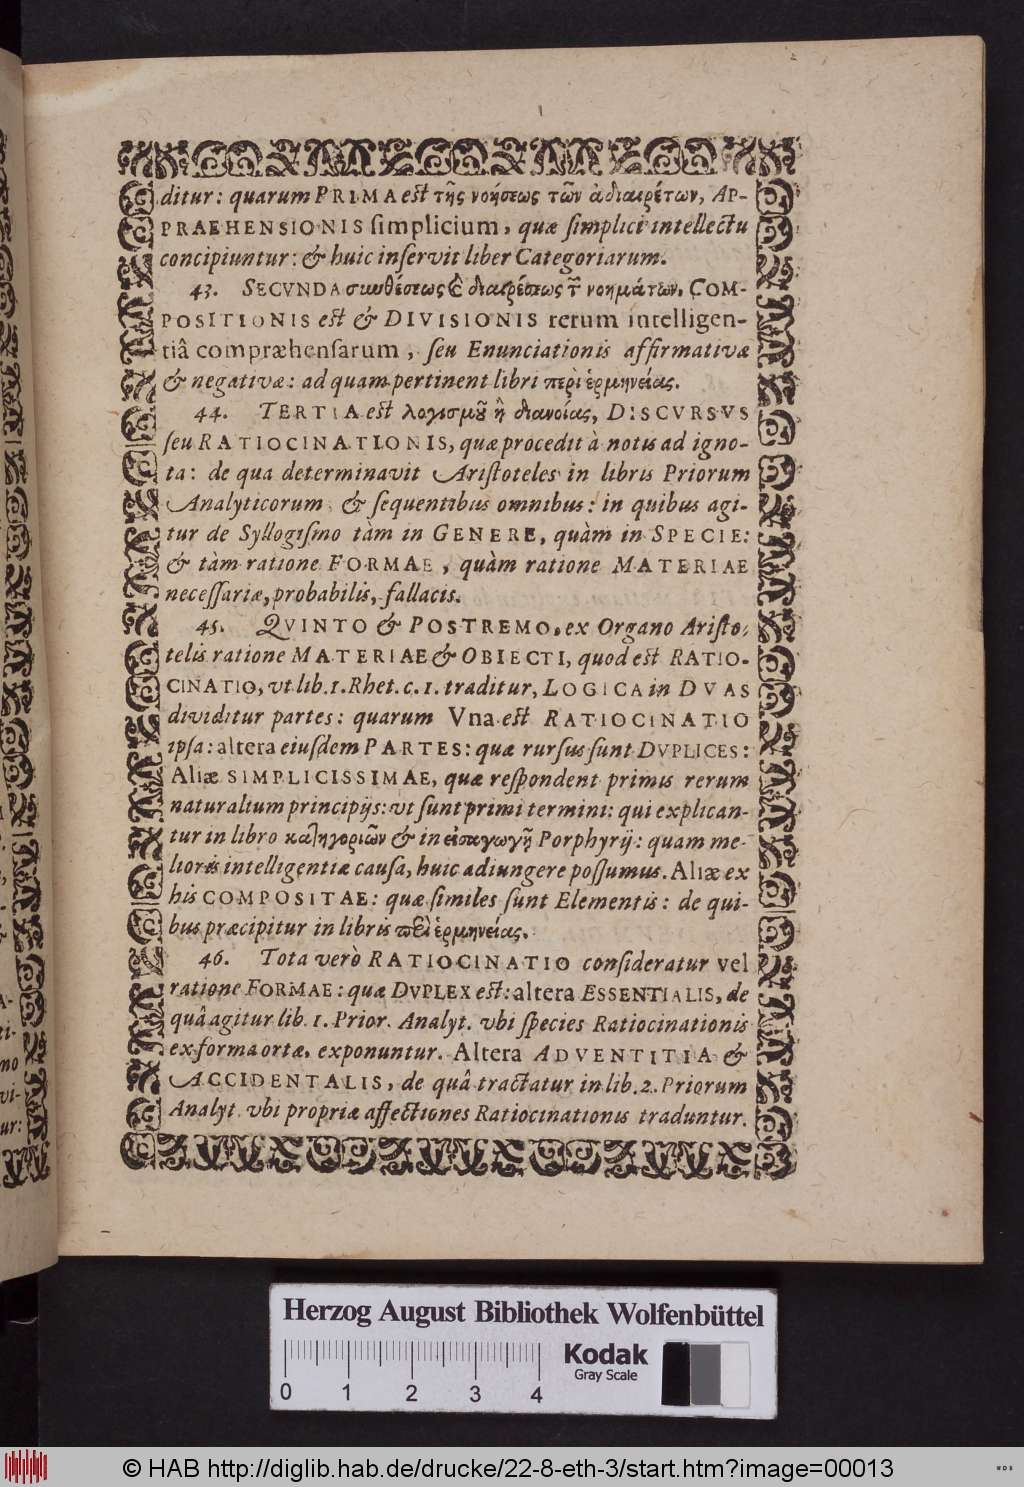 ditur: quarum PRIMA est τῆς νοήσεως τῶν ἀδιαιρέτων, AP-
PRAEHENSIONIS simplicium, quæ simplici intellectu
concipiuntur: & huic inservit liber Categoriarum.
43. SECVNDA συνθέσεως & διαιρέσεως τ̃ νοημάτων, COM-
POSITIONIS est & DIVISIONIS rerum intelligen-
tiâ compræhensarum, seu Enunciationis affirmativæ
& negativæ: ad quam pertinent libri περὶ ἑρμηνείας.
44. TERTIA est λογισμοῦ ἢ διανοίας, DISCVRSVS
seu RATIOCINATIONIS, quæ procedit à notis ad igno-
ta: de qua determinavit Aristoteles in libris Priorum
Analyticorum, & sequentibus omnibus: in quibus agi-
tur de Syllogismo tàm in GENERE, quàm in SPECIE:
& tàm ratione FORMAE, quàm ratione MATERIAE
necessariæ, probabilis, fallacis.
45. QVINTO & POSTREMO, ex Organo Aristo-
telis ratione MATERIAE & OBIECTI, quod est RATIO-
CINATIO, vt lib. 1. Rhet. c. 1. traditur, LOGICA in DVAS
dividitur partes: quarum Vna est RATIOCINATIO
ipsa: altera eiusdem PARTES: quæ rursus sunt DVPLICES:
Aliæ SIMPLICISSIMAE, quæ respondent primis rerum
naturalium principijs: vt sunt primi termini: qui explican-
tur in libro κατηγοριῶν & in εἰσαγωγῇ Porphyrij: quam me-
lioris intelligentiæ causa, huic adiungere possumus. Aliæ ex
his COMPOSITAE: quæ similes sunt Elementis: de qui-
bus præcipitur in libris περὶ ἑρμηνείας.
46. Tota verò RATIOCINATIO consideratur vel
ratione FORMAE: quæ DVPLEX est: altera ESSENTIALIS, de
quâ agitur lib. 1. Prior. Analyt. vbi species Ratiocinationis
ex forma ortæ, exponuntur. Altera ADVENTITIA &
ACCIDENTALIS, de quâ tractatur in lib. 2. Priorum
Analyt. vbi propriæ affectiones Ratiocinationis traduntur.
Herzog August Bibliothek Wolfenbüttel
Kodak
Gray Scale
0 1 2 3 4
© HAB http://diglib.hab.de/drucke/22-8-eth-3/start.htm?image=00013